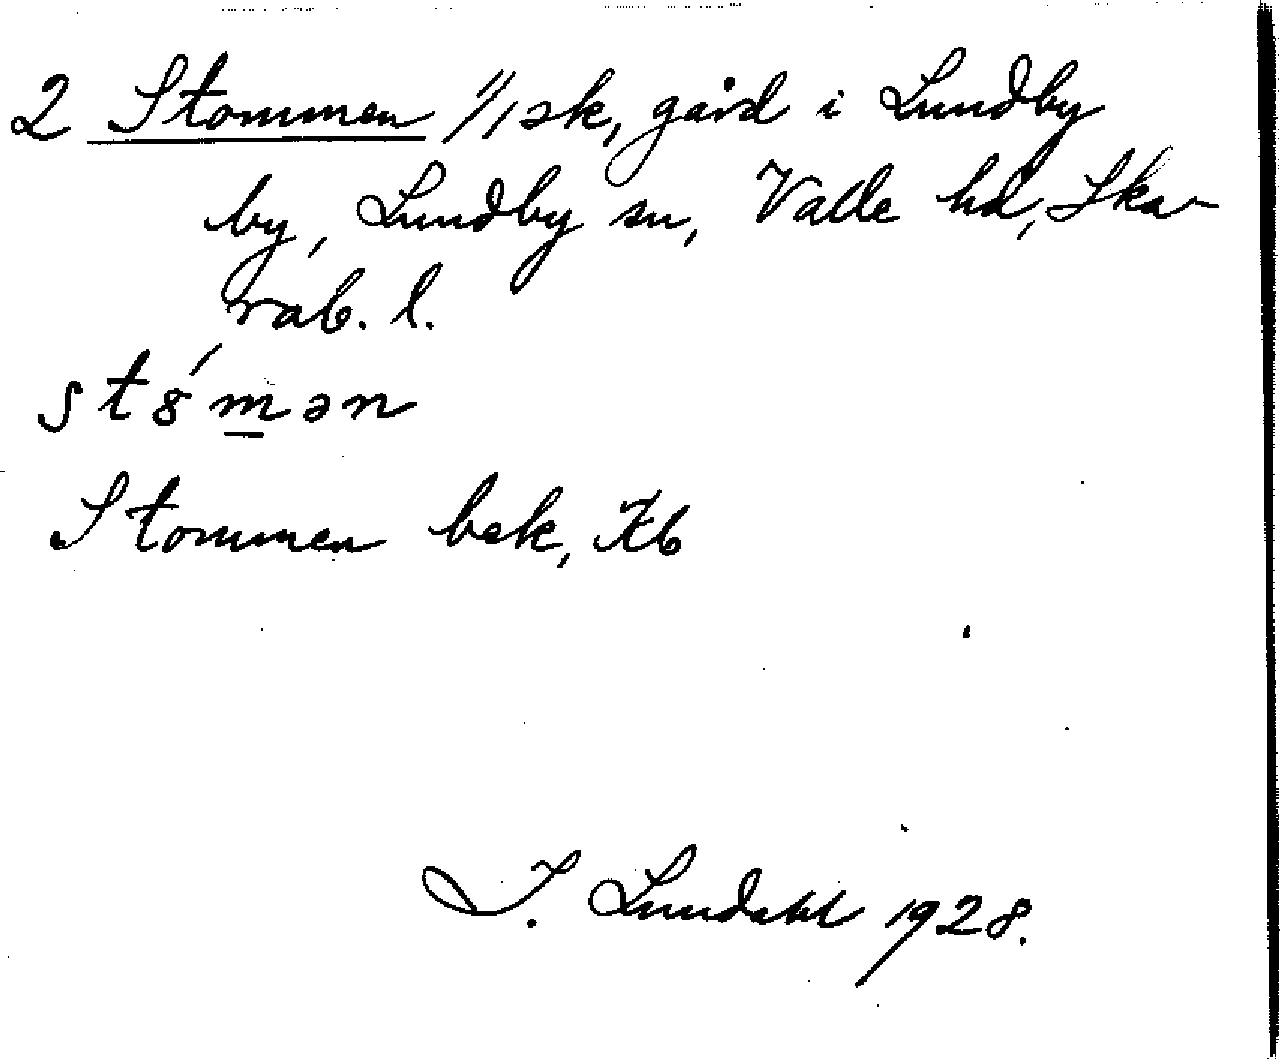 2 Stommen 1/1 sk, gård i Lundby
by, Lundby sn, Valle hd, Ska-
rab. l.
st8́mən
Stommen bek, Kb
I. Lundahl 1928.